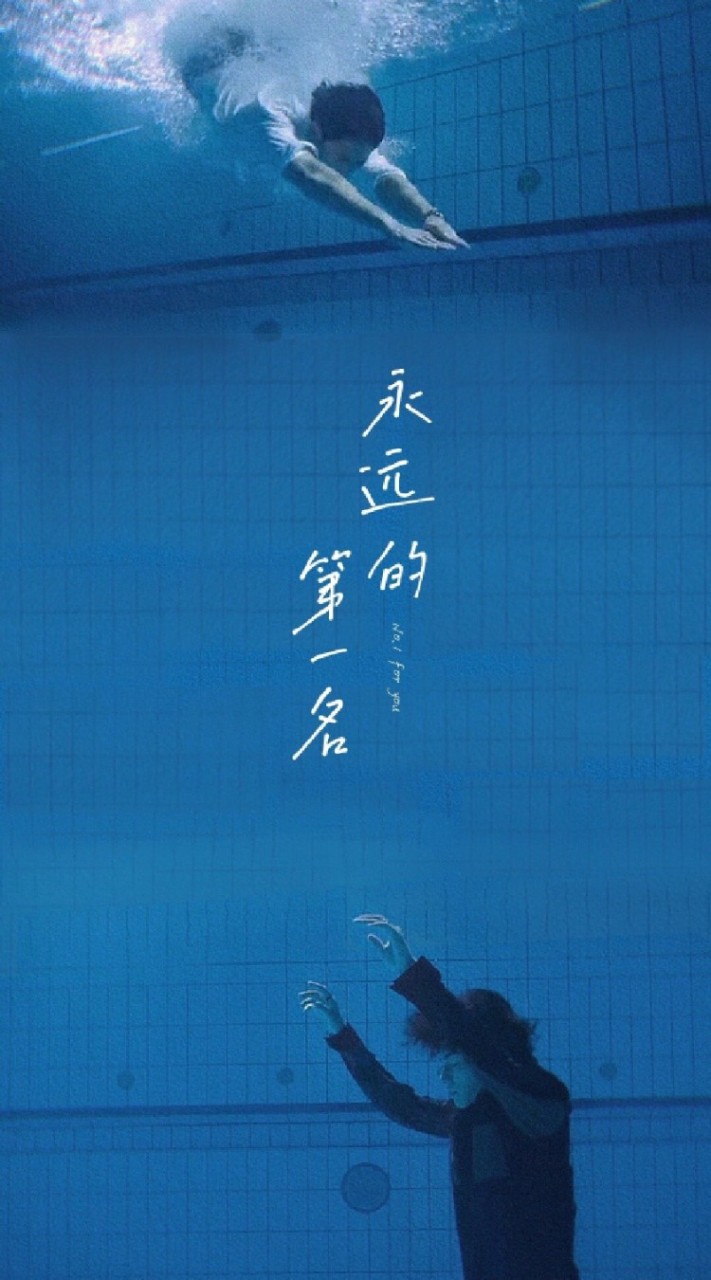 永远的
第一名
No.1 for you